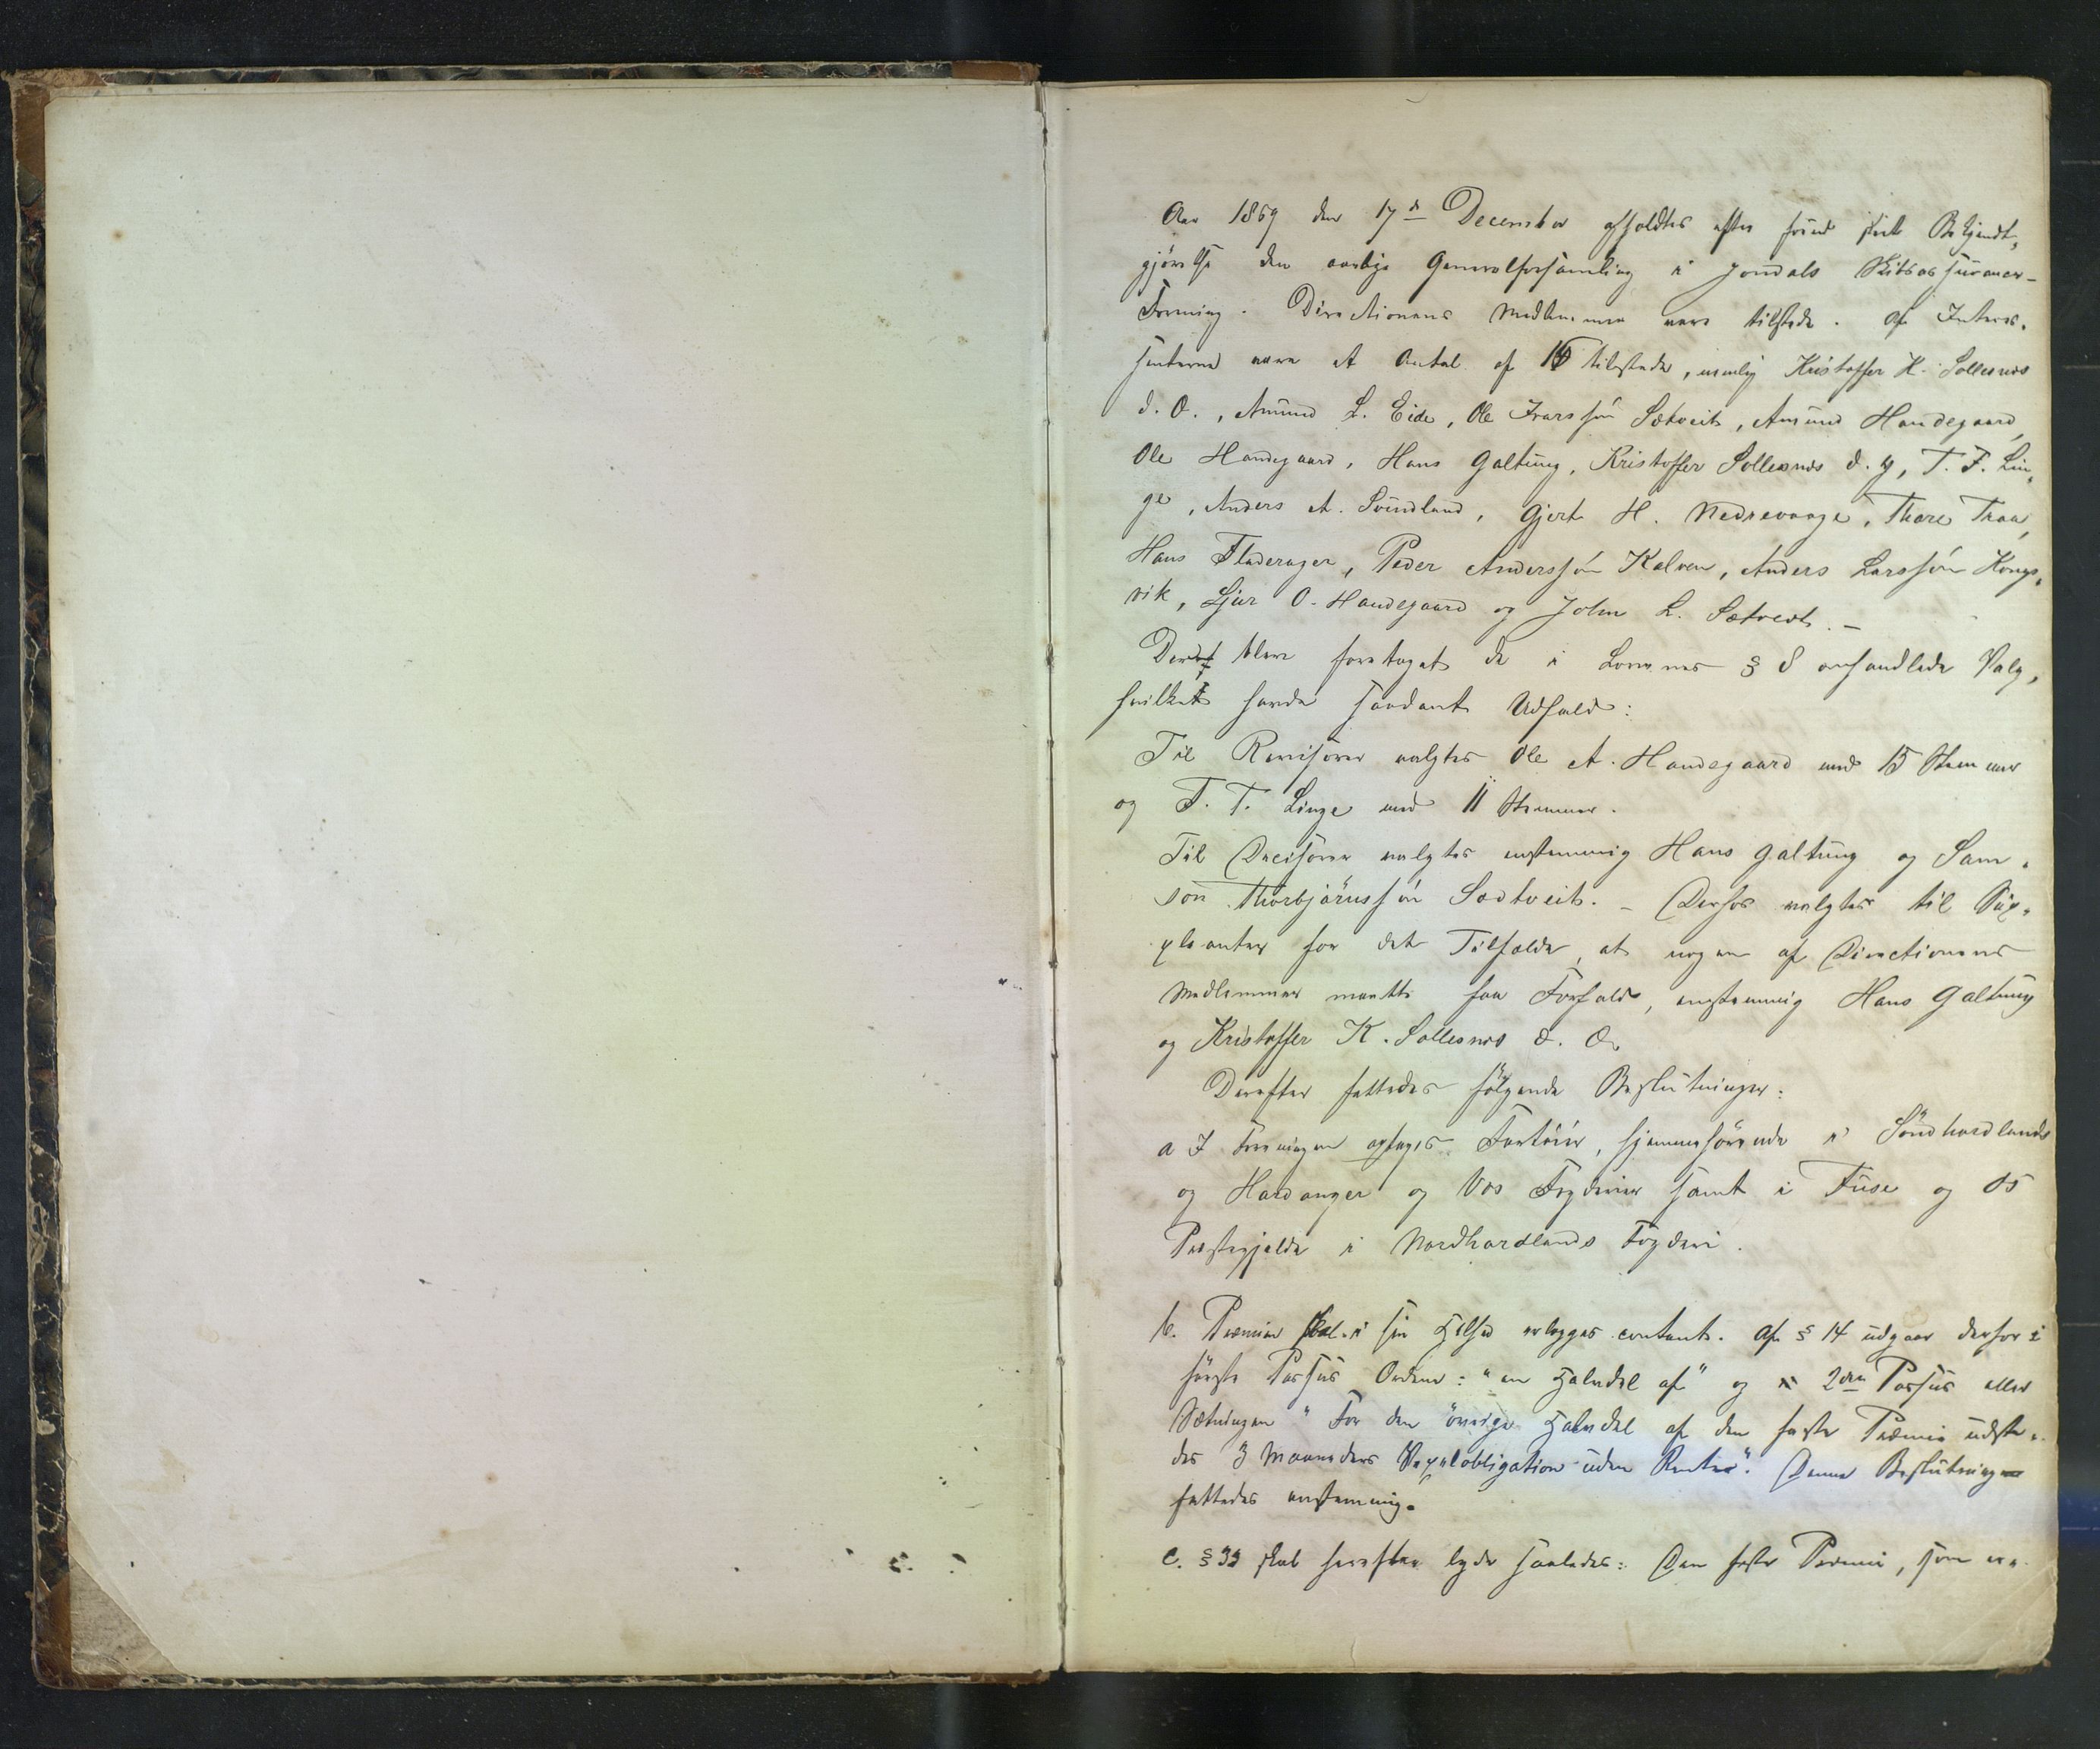 Aar 1869 den 17de December afholdtes efter forud skeet Bekjendt-
gjørelse den aarlige Generalforsamling i Jondals Skibsassurance-
Forening. Directionens Medlemmer vare tilstede. Af Interes-
senterne vare et Antal af 16 tilstede, nemlig Kristoffer K. Sollesnes
d. Æ., Amund L. Eide, Ole Ivarssøn Sætveit, Amund Handegaard,
Ole Handegaard, Hans Galtung, Kristoffer Sollesnes d. y, T. T. Lin-
ge, Anders A. Svindland, Gjert H. Nedrevaage, Thore Traa,
Hans Fladerager, Peder Anderssøn Kalven, Anders Larssøn Kongs-
vik, Sjur O. Handegaard og John L. Sætveit. –
Derpaa blev foretaget de i Lovenes § 8 omhandlede Valg,
hvilket havde saadant Udfald:
Til Revisorer valgtes Ole A. Handegaard med 15 Stemmer
og T. T. Linge med 11 Stemmer.
Til Decisorer valgtes enstemmig Hans Galtung og Sam-
son Thorbjørnssøn Sætveit. – Derhos valgtes til Sup-
pleanter for det Tilfælde, at nogen af Directionens
Medlemmer maatte faa Forfald, enstemmig Hans Galtung
og Kristoffer K. Sollesnes d. Æ.
Derefter fattedes følgende Beslutninger:
a I Foreningen optages Fartøier, hjemmehørende i Søndhordlands
og Hardanger og Vos Fogderier samt i Fuse og Os
Præstegjelde i Nordhordlands Fogderi.
b. Præmien skal i sin Helhed erlægges contant. Af § 14 udgaar derfor i
første Passus Ordene: "en Halvdel af" og i 2den Passus eller
Sætningen "For den øvrige Halvdel af den faste Præmie udste-
des 3 Maaneders Vexelobligation uden Renter". Denne Beslutning
fattedes enstemmig.
c. § 33 skal herefter lyde saaledes: Den faste Præmie, som er-